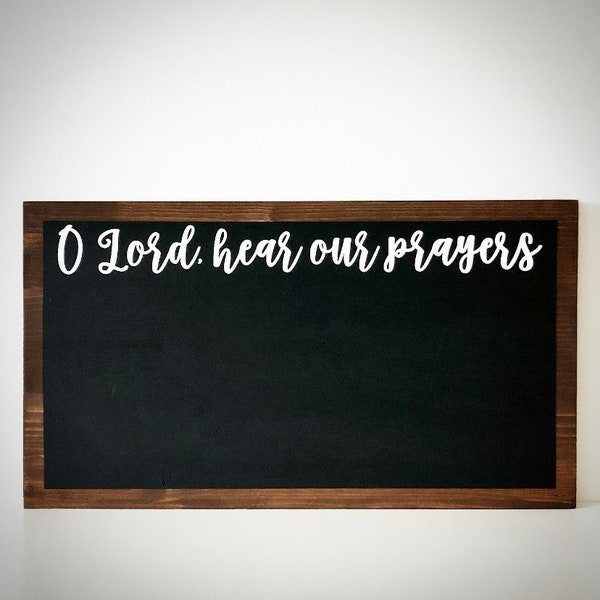 O Lord, hear our prayers